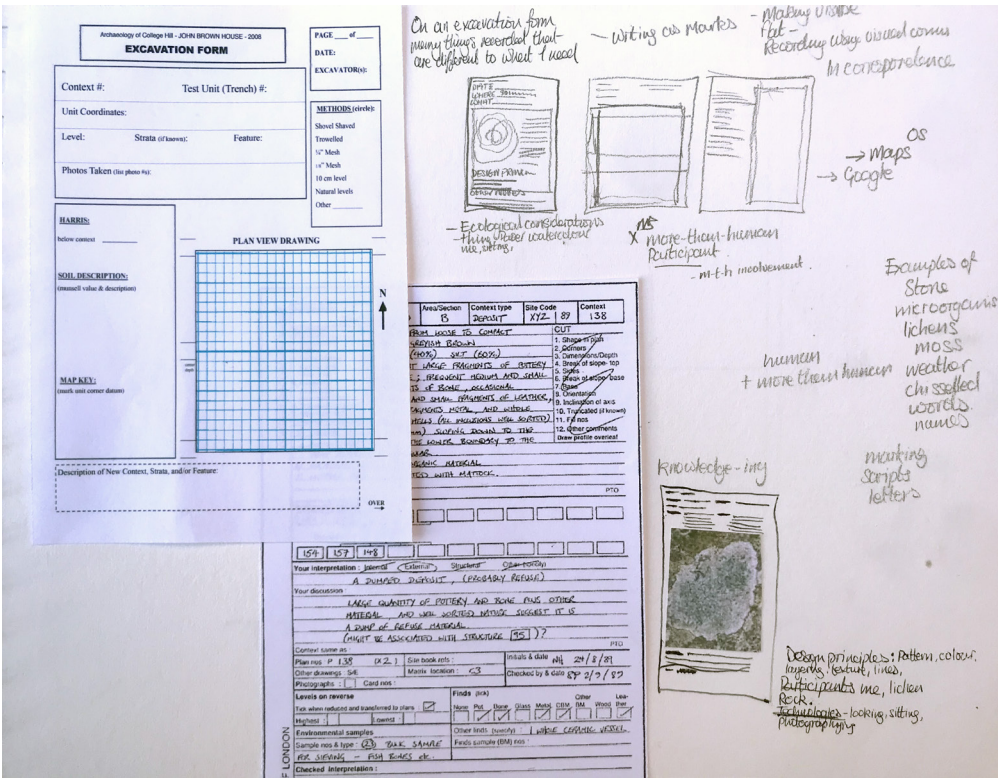 Archaeology of College Hill - JOHN BROWN HOUSE - 2008
EXCAVATION FORM
PAGE ___ of ___
DATE:
EXCAVATOR(s):
Context #:
Test Unit (Trench) #:
Unit Coordinates:
Level:
Strata (if known):
Feature:
Photos Taken (list photo #s):
METHODS (circle):
Shovel Shaved
Trowelled
¼" Mesh
⅛" Mesh
10 cm level
Natural levels
Other ______
HARRIS:
below context ______
SOIL DESCRIPTION:
(munsell value & description)
MAP KEY:
(mark unit corner datum)
PLAN VIEW DRAWING
N
Description of New Context, Strata, and/or Feature:
OVER
Area/Section
B
Context type
DEPOSIT
Site Code
XYZ 89
Context
138
FROM LOOSE TO COMPACT
GREYISH BROWN
(40%) SILT (60%)
LARGE FRAGMENTS OF POTTERY
; FREQUENT MEDIUM AND SMALL
OF BONE, OCCASIONAL
AND SMALL FRAGMENTS OF LEATHER,
METAL, AND WHOLE
(ALL INCLUSIONS WELL SORTED)
SLOPING DOWN TO THE
LOWER BOUNDARY TO THE
MATERIAL
WITH MATTOCK.
PTO
CUT
1. Shape in plan
2. Corners
3. Dimensions/Depth
4. Break of slope- top
5. Sides
6. Break of slope- base
7. Base
8. Orientation
9. Inclination of axis
10. Truncated (if known)
11. Fill nos
12. Other comments
Draw profile overleaf
154 157 148
Your interpretation : Internal External Structural Other (specify)
A DUMPED DEPOSIT, (PROBABLY REFUSE)
Your discussion :
LARGE QUANTITY OF POTTERY AND BONE PLUS OTHER
MATERIAL, AND WELL SORTED NATURE SUGGEST IT IS
A DUMP OF REFUSE MATERIAL.
(MIGHT BE ASSOCIATED WITH STRUCTURE 95)?
PTO
Context same as :
Plan nos P 138 (X 2)
Site book refs :
Initials & date
24/8/89
Other drawings : S/E
Matrix location :
Checked by & date
2/9/89
Photographs :
Card nos :
Levels on reverse
Tick when reduced and transferred to plans :
Highest :
Lowest :
Finds (tick)
None Pot Bone Glass Metal CBM Other BM Wood Leather
Environmental samples
Sample nos & type : BULK SAMPLE
FOR SIEVING - FISH BONES etc.
Other finds (specify) : 1 WHOLE CERAMIC VESSEL
Finds sample (BM) nos :
Checked interpretation :
F LONDON
On an excavation form
many things recorded that
are different to what I need
- writing as
- Making visible
Recording ways visual comms
In correspondence
DATE
WHERE
WHAT
DESIGN PRIN
- Ecological considerations
me, sitting,
more-than-human
Participant
- m-t-h involvement.
OS
→ Maps
→ Google
human
+ more than human
Examples of
Stone
microorganis
lichens
moss
weather
chisselled
words
names
marking
scripts
letters
knowledge-ing
Design principles: Pattern, colour,
layering, texture, lines,
Participants me, lichen
Rock.
Technologies - looking, sitting,
photographing